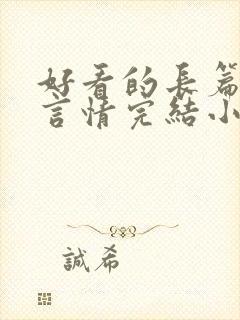 好看的長篇
言情完結小
誠希